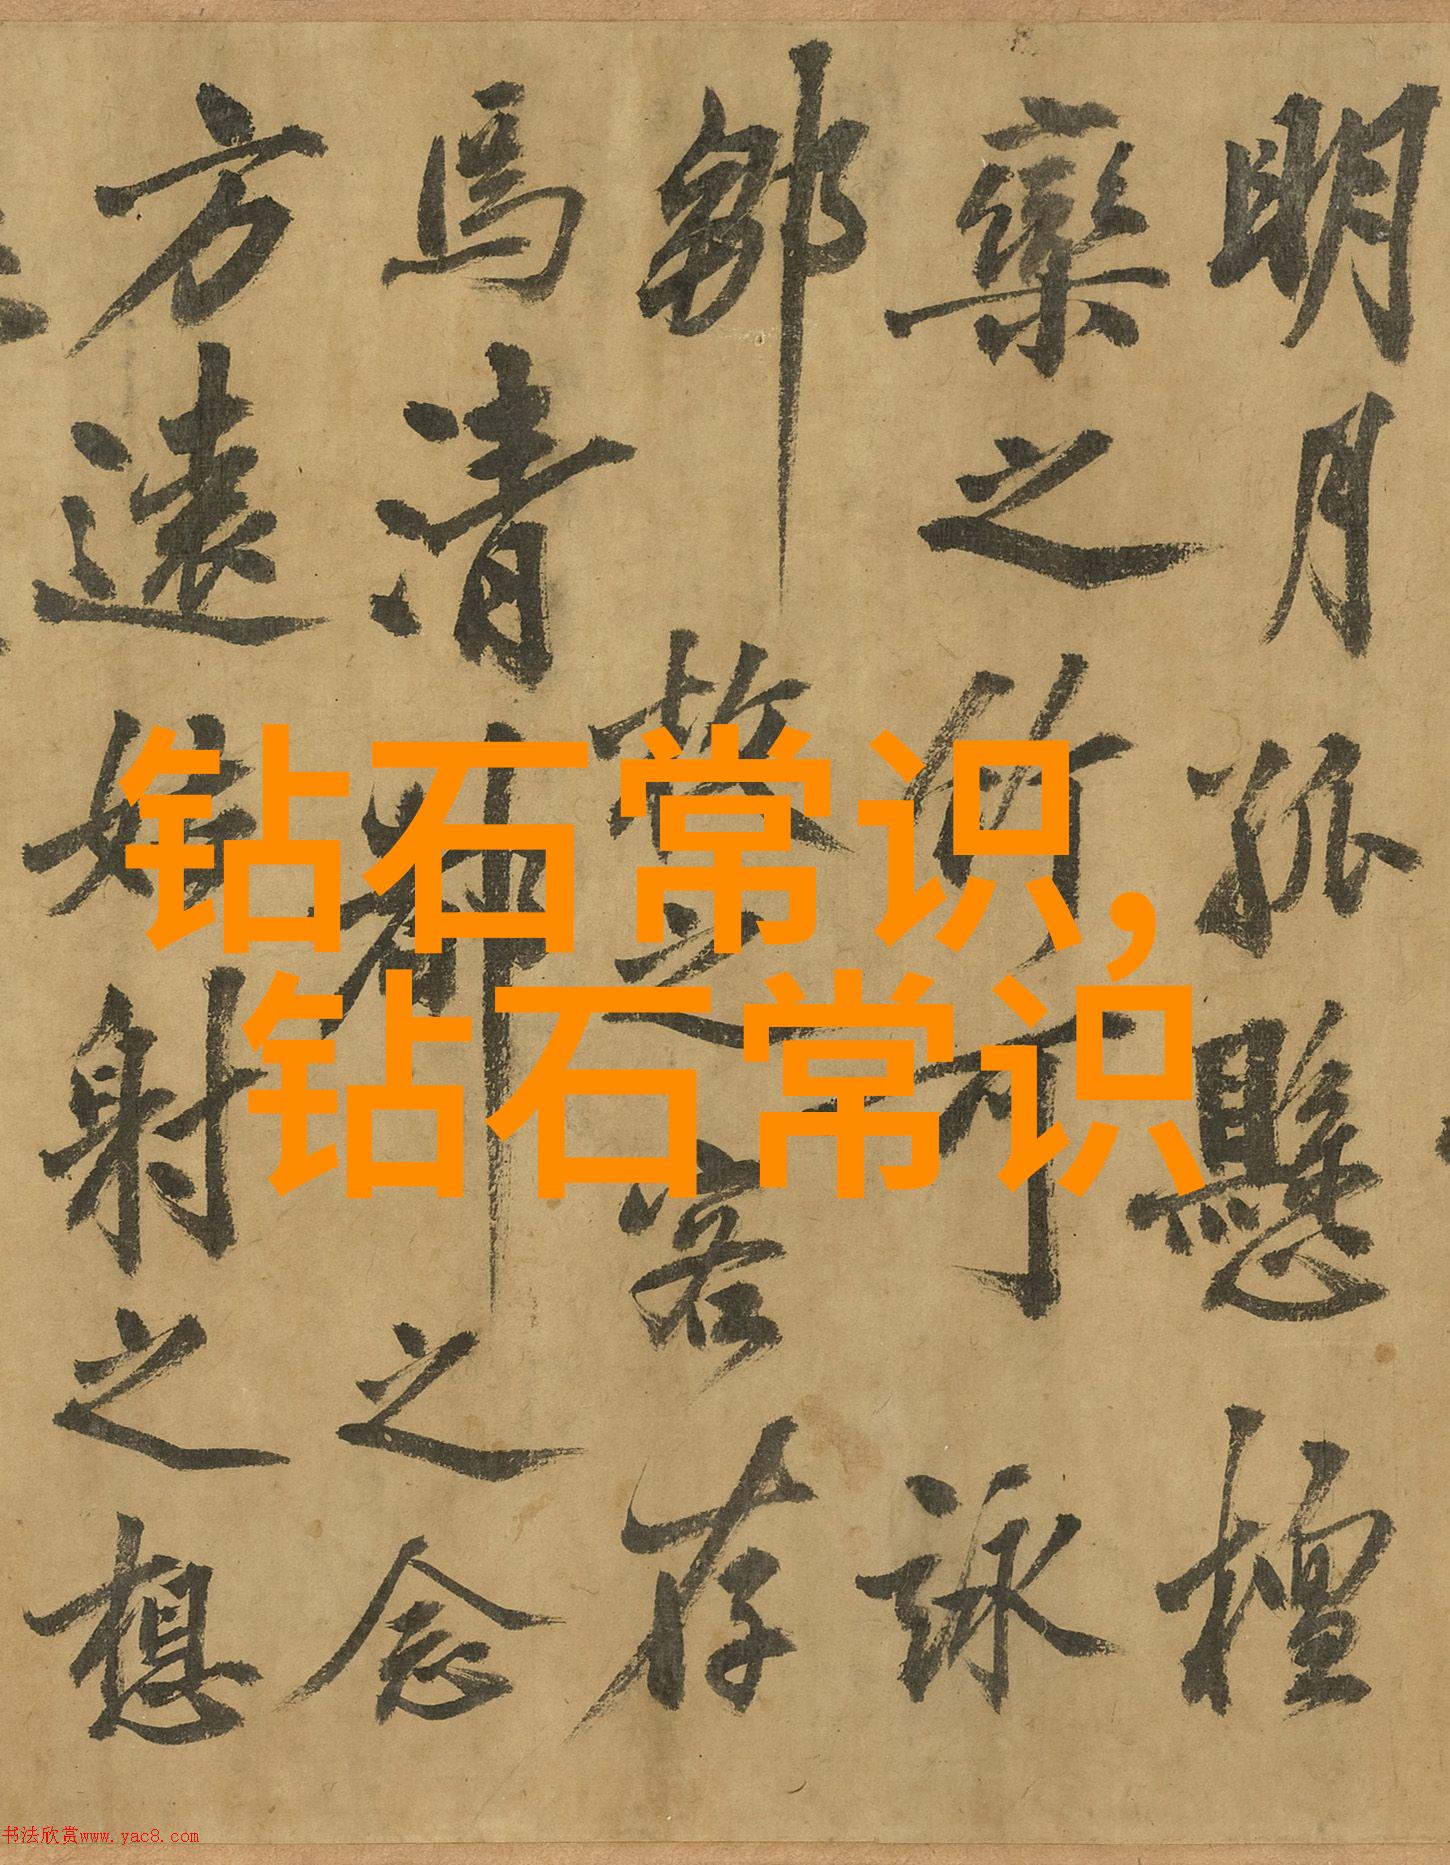 明月孤懸檀
欒之竹可詠
鄒之客存
焉清都之念
方遠姑射之想
钻石常识,
钻石常识
书法欣赏www.yac8.com